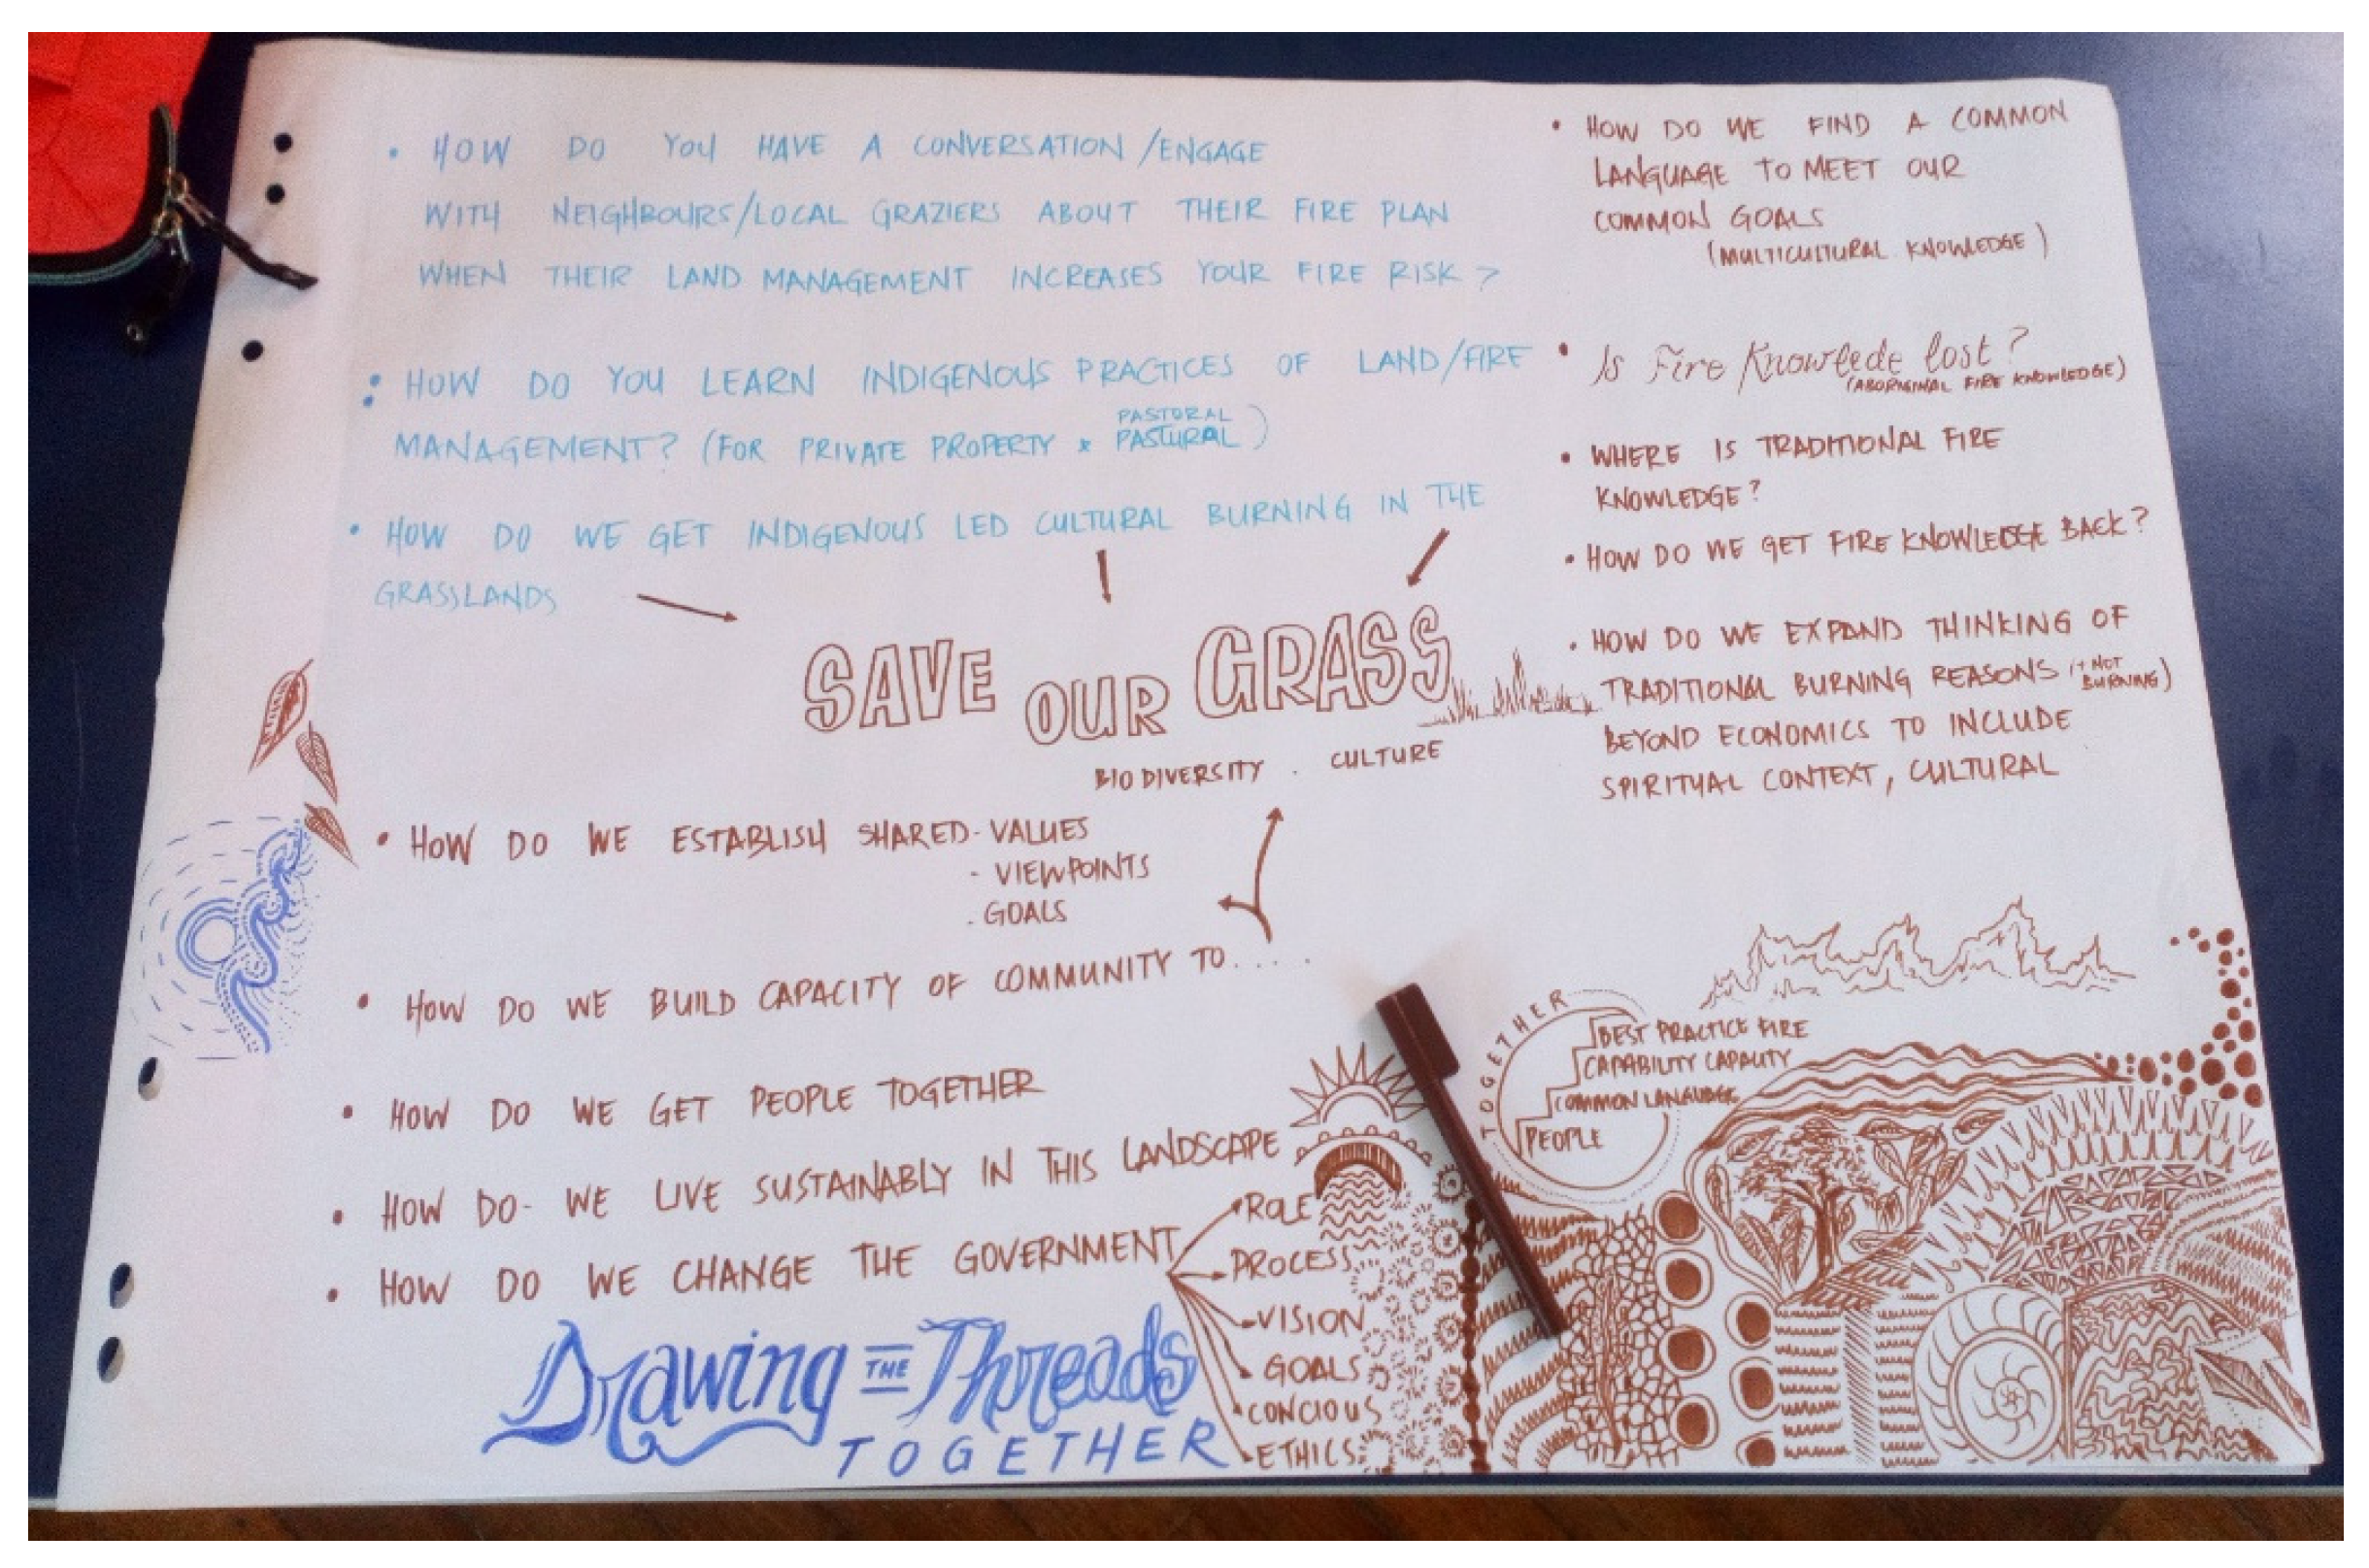 • HOW DO YOU HAVE A CONVERSATION/ENGAGE
WITH NEIGHBOURS/LOCAL GRAZIERS ABOUT THEIR FIRE PLAN
WHEN THEIR LAND MANAGEMENT INCREASES YOUR FIRE RISK?
• HOW DO YOU LEARN INDIGENOUS PRACTICES OF LAND/FIRE
MANAGEMENT? (FOR PRIVATE PROPERTY * PASTURAL)
PASTORAL
• HOW DO WE GET INDIGENOUS LED CULTURAL BURNING IN THE
GRASSLANDS
• HOW DO WE FIND A COMMON
LANGUAGE TO MEET OUR
COMMON GOALS
(MULTICULTURAL KNOWLEDGE)
• Is Fire Knowlede lost?
(ABORIGINAL FIRE KNOWLEDGE)
• WHERE IS TRADITIONAL FIRE
KNOWLEDGE?
• HOW DO WE GET FIRE KNOWLEDGE BACK?
• HOW DO WE EXPAND THINKING OF
TRADITIONAL BURNING REASONS (+ NOT
BURNING)
BEYOND ECONOMICS TO INCLUDE
SPIRITUAL CONTEXT, CULTURAL
SAVE OUR GRASS
BIODIVERSITY . CULTURE
• HOW DO WE ESTABLISH SHARED - VALUES
- VIEWPOINTS
- GOALS
• HOW DO WE BUILD CAPACITY OF COMMUNITY TO.....
• HOW DO WE GET PEOPLE TOGETHER
• HOW DO- WE LIVE SUSTAINABLY IN THIS LANDSCAPE
• HOW DO WE CHANGE THE GOVERNMENT
ROLE
PROCESS
VISION
GOALS
CONCIOUS
ETHICS
TOGETHER
BEST PRACTICE FIRE
CAPABILITY CAPACITY
COMMON LANGUAGE
PEOPLE
Drawing THE Threads
TOGETHER